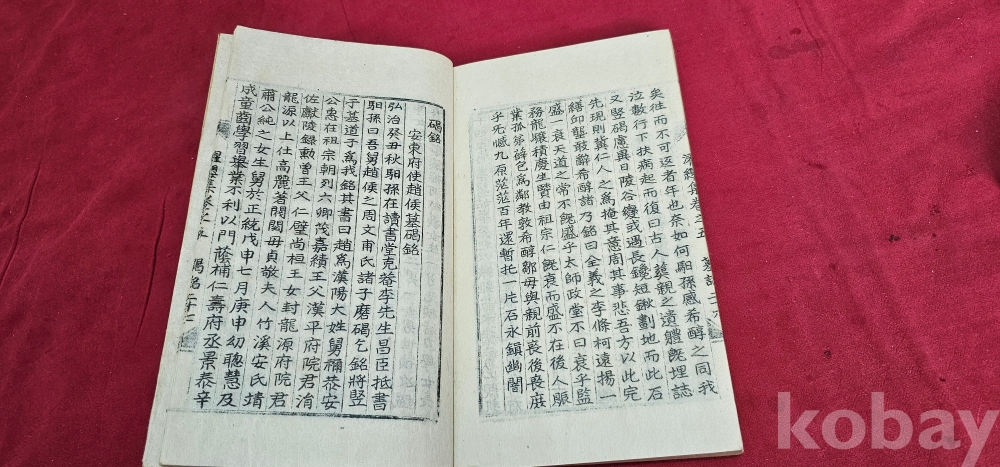 矣往而不可返者年也奈如何馹孫感希醇之同我
泣數行下扶病起而復曰古人葬親之遺體旣埋誌
又竪碣慮異日陵谷變或遇長鑱短鍬劃地而此石
先現則冀仁人之爲掩其意周其事悲吾方以此完
繕卬龏敢辭希醇諾乃銘曰全義之李條柯遠揚一
盛一衰天道之常不旣盛乎太師政堂不曰衰乎監
務龍驤積慶生賢由祖宗仁旣衰而盛不在後人賑
業孤弟薛包爲鄰教敦希醇鄒母與親前喪後喪庭
乎无憾九原茫茫百年還暫托一片石永鎭幽闇
碣銘
安東府使趙侯墓碣銘
弘治癸丑秋馹孫在讀書堂克菴李先生昌臣抵書
馹孫曰吾舅趙侯之周文甫氏諸子磨碣乞銘將竪
于墓道子爲我銘其書曰趙爲漢陽大姓舅禰恭安
公忠在祖宗朝列六卿茂嘉績王父漢平府院君涓
佐獻陵錄勲曾王父仁璧尚桓王女封龍源府院君
龍源以上仕高麗著閥閱母貞敬夫人竹溪安氏靖
肅公純之女生舅於正統戊申七月庚申幼聰慧及
成童啇學習舉業不利以門蔭補仁壽府丞景泰辛
碣銘
kobay